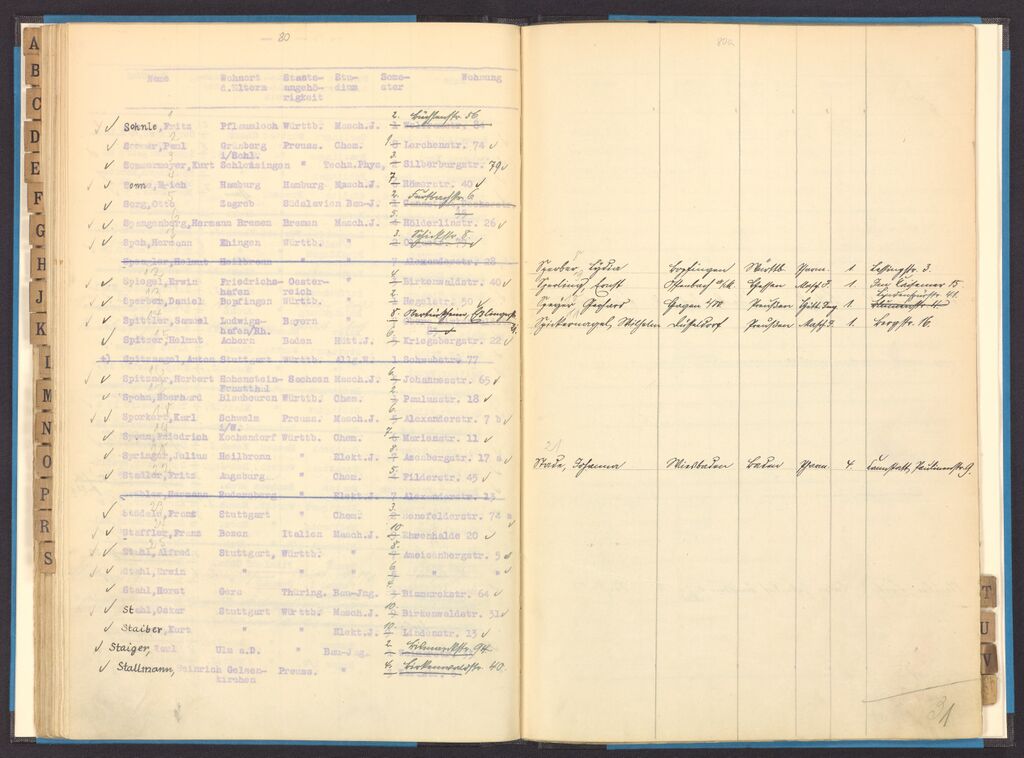 80
Name Wohnort d.Eltern Staatsangehörigkeit Studium Semester Wohnung
Sohnle, Fritz Pflaumloch Württb. Masch.J. 2. Büchsenstr. 56
Sommer, Paul Grünberg i/Schl. Preuss. Chem. Lerchenstr. 74
Sommermeyer, Kurt Schleusingen " Techn.Phys. 3. Silberburgstr. 79
Sonn, Erich Hamburg Hamburg Masch.J. 7 Römerstr. 40
Sorg, Otto Zagreb Südslavien Bau-J. 2. Furtbachstr. 6
Spangenberg, Hermann Bremen Bremen Masch.J. 5. Hölderlinstr. 26
Speh, Hermann Ehingen Württb. " 3. Schickstr. 8.
Spengler, Helmut Heilbronn " " 7 Alexanderstr. 28
Spiegel, Erwin Friedrichshafen Oesterreich " 4 Birkenwaldstr. 40
Sperber, Daniel Bopfingen Württb. " Hegelstr. 50
Spittler, Samuel Ludwigshafen/Rh. Bayern " 8.
Spitzer, Helmut Achern Baden Hütt.J. 6 Kriegsbergstr. 22
Spitznagel, Anton Stuttgart Württb. Allg.W. 1 Schwabstr. 77
Spitzner, Herbert Hohenstein-Ernstthal Sachsen Masch.J. 6 Johannesstr. 65
Spohn, Eberhard Blaubeuren Württb. Chem. 2 Paulusstr. 18
Sporkert, Karl Schwelm i/W. Preuss. Masch.J. 6 Alexanderstr. 7 b
Spoun, Friedrich Kochendorf Württb. Chem. 7 Marienstr. 11
Springer, Julius Heilbronn " Elekt.J. 8. Azenbergstr. 17 a
Staller, Fritz Augsburg " Chem. 5. Filderstr. 45
Hermann Rudersberg " Elekt.J. 7 Alexanderstr. 13
Städele, Franz Stuttgart " Chem. 3. Senefelderstr. 74 a
Staffler, Franz Bozen Italien Masch.J. 10 Ehrenhalde 20
Stahl, Alfred Stuttgart, Württb. " 8. Ameisenbergstr. 5
Stahl, Erwin " " " 6 " "
Stahl, Horst Gera Thüring. Bau-Jng. 4 Bismarckstr. 64
Stahl, Oskar Stuttgart Württb. Masch.J. 10. Birkenwaldstr. 31
Staiber, Kurt " " Elekt.J. 10 Lindenstr. 13
Staiger, Paul Ulm a.D. " Bau-Jng. 2. Bismarckstr. 94.
Stallmann, Heinrich Gelsenkirchen Preuss. " 4. Birkenwaldstr. 40.
80a
Sperber, Lydia Bopfingen Württb. Pharm. 1. Lessingstr. 3.
Sperling, Ernst Offenbach a/M. Hessen Masch.J. 1.
Speyer, Gerhard Hagen i/W. Preußen 1.
Spickernagel, Wilhelm Düsseldorf Preußen Masch.J. 1. Bergstr. 16.
21
Stade, Johanna Wiesbaden Baden Pharm. 4. Cannstatt, Paulinenstr. 9.
31
A
B
C
D
E
F
G
H
J
K
L
M
N
O
P
R
S
T
U
V